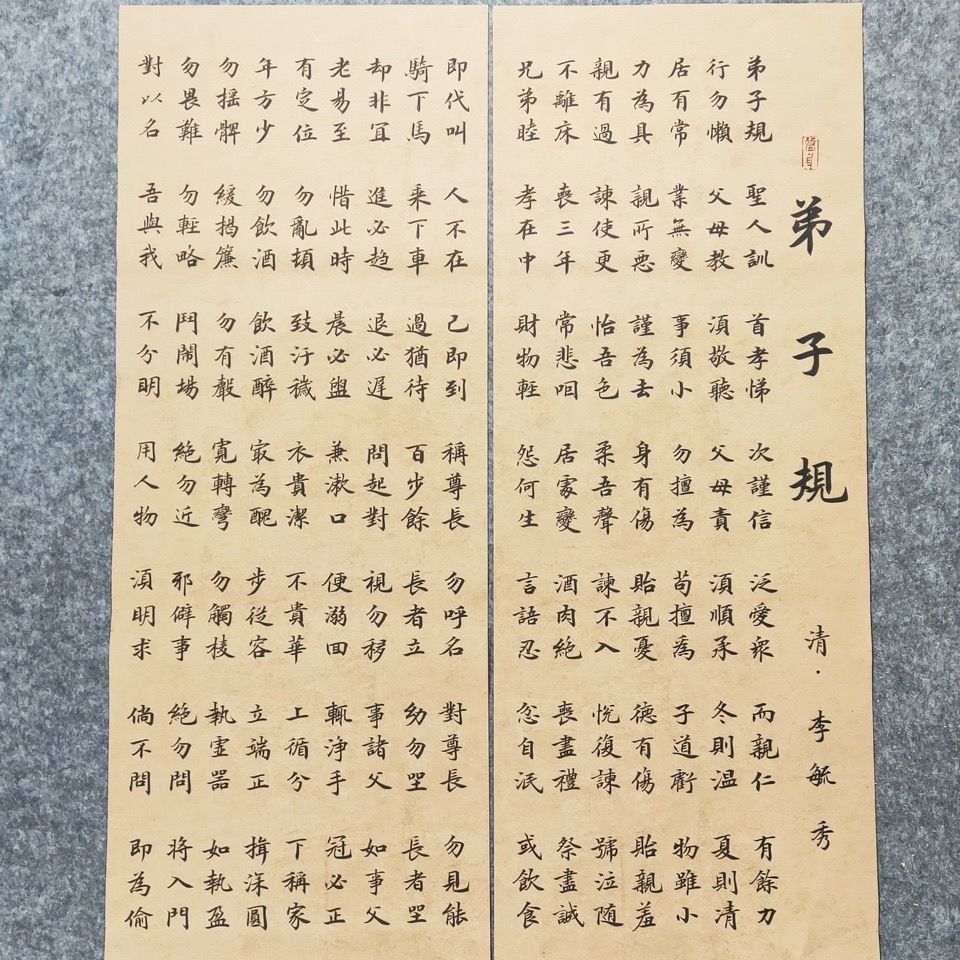 弟子規 清·李毓秀
弟子規 聖人訓 首孝悌 次謹信 泛愛衆 而親仁 有餘力
行勿懶 父母教 須敬聽 父母責 須順承 冬則温 夏則清
居有常 業無變 事須小 勿擅為 苟擅為 子道虧 物雖小
力為具 親所惡 謹為去 身有傷 貽親憂 德有傷 貽親羞
親有過 諫使更 怡吾色 柔吾聲 諫不入 悅復諫 號泣随
不離床 喪三年 常悲咽 居處變 酒肉絶 喪盡禮 祭盡誠
兄弟睦 孝在中 財物輕 怨何生 言語忍 忿自泯 或飲食
即代叫 人不在 己即到 稱尊長 勿呼名 對尊長 勿見能
騎下馬 乘下車 過猶待 百步餘 長者立 幼勿坐 長者坐
却非宜 進必趋 退必遲 問起對 視勿移 事諸父 如事父
老易至 惜此時 晨必盥 兼漱口 便溺回 輒浄手 冠必正
有定位 勿亂頓 致汙穢 衣貴潔 不貴華 上循分 下稱家
年方少 勿飲酒 飲酒醉 最為醜 步從容 立端正 揖深圓
勿摇髀 緩揭簾 勿有聲 寬轉彎 勿觸棱 執虚器 如執盈
勿畏難 勿輕略 鬥鬧場 絶勿近 邪僻事 絶勿問 將入門
對以名 吾與我 不分明 用人物 須明求 倘不問 即為偷